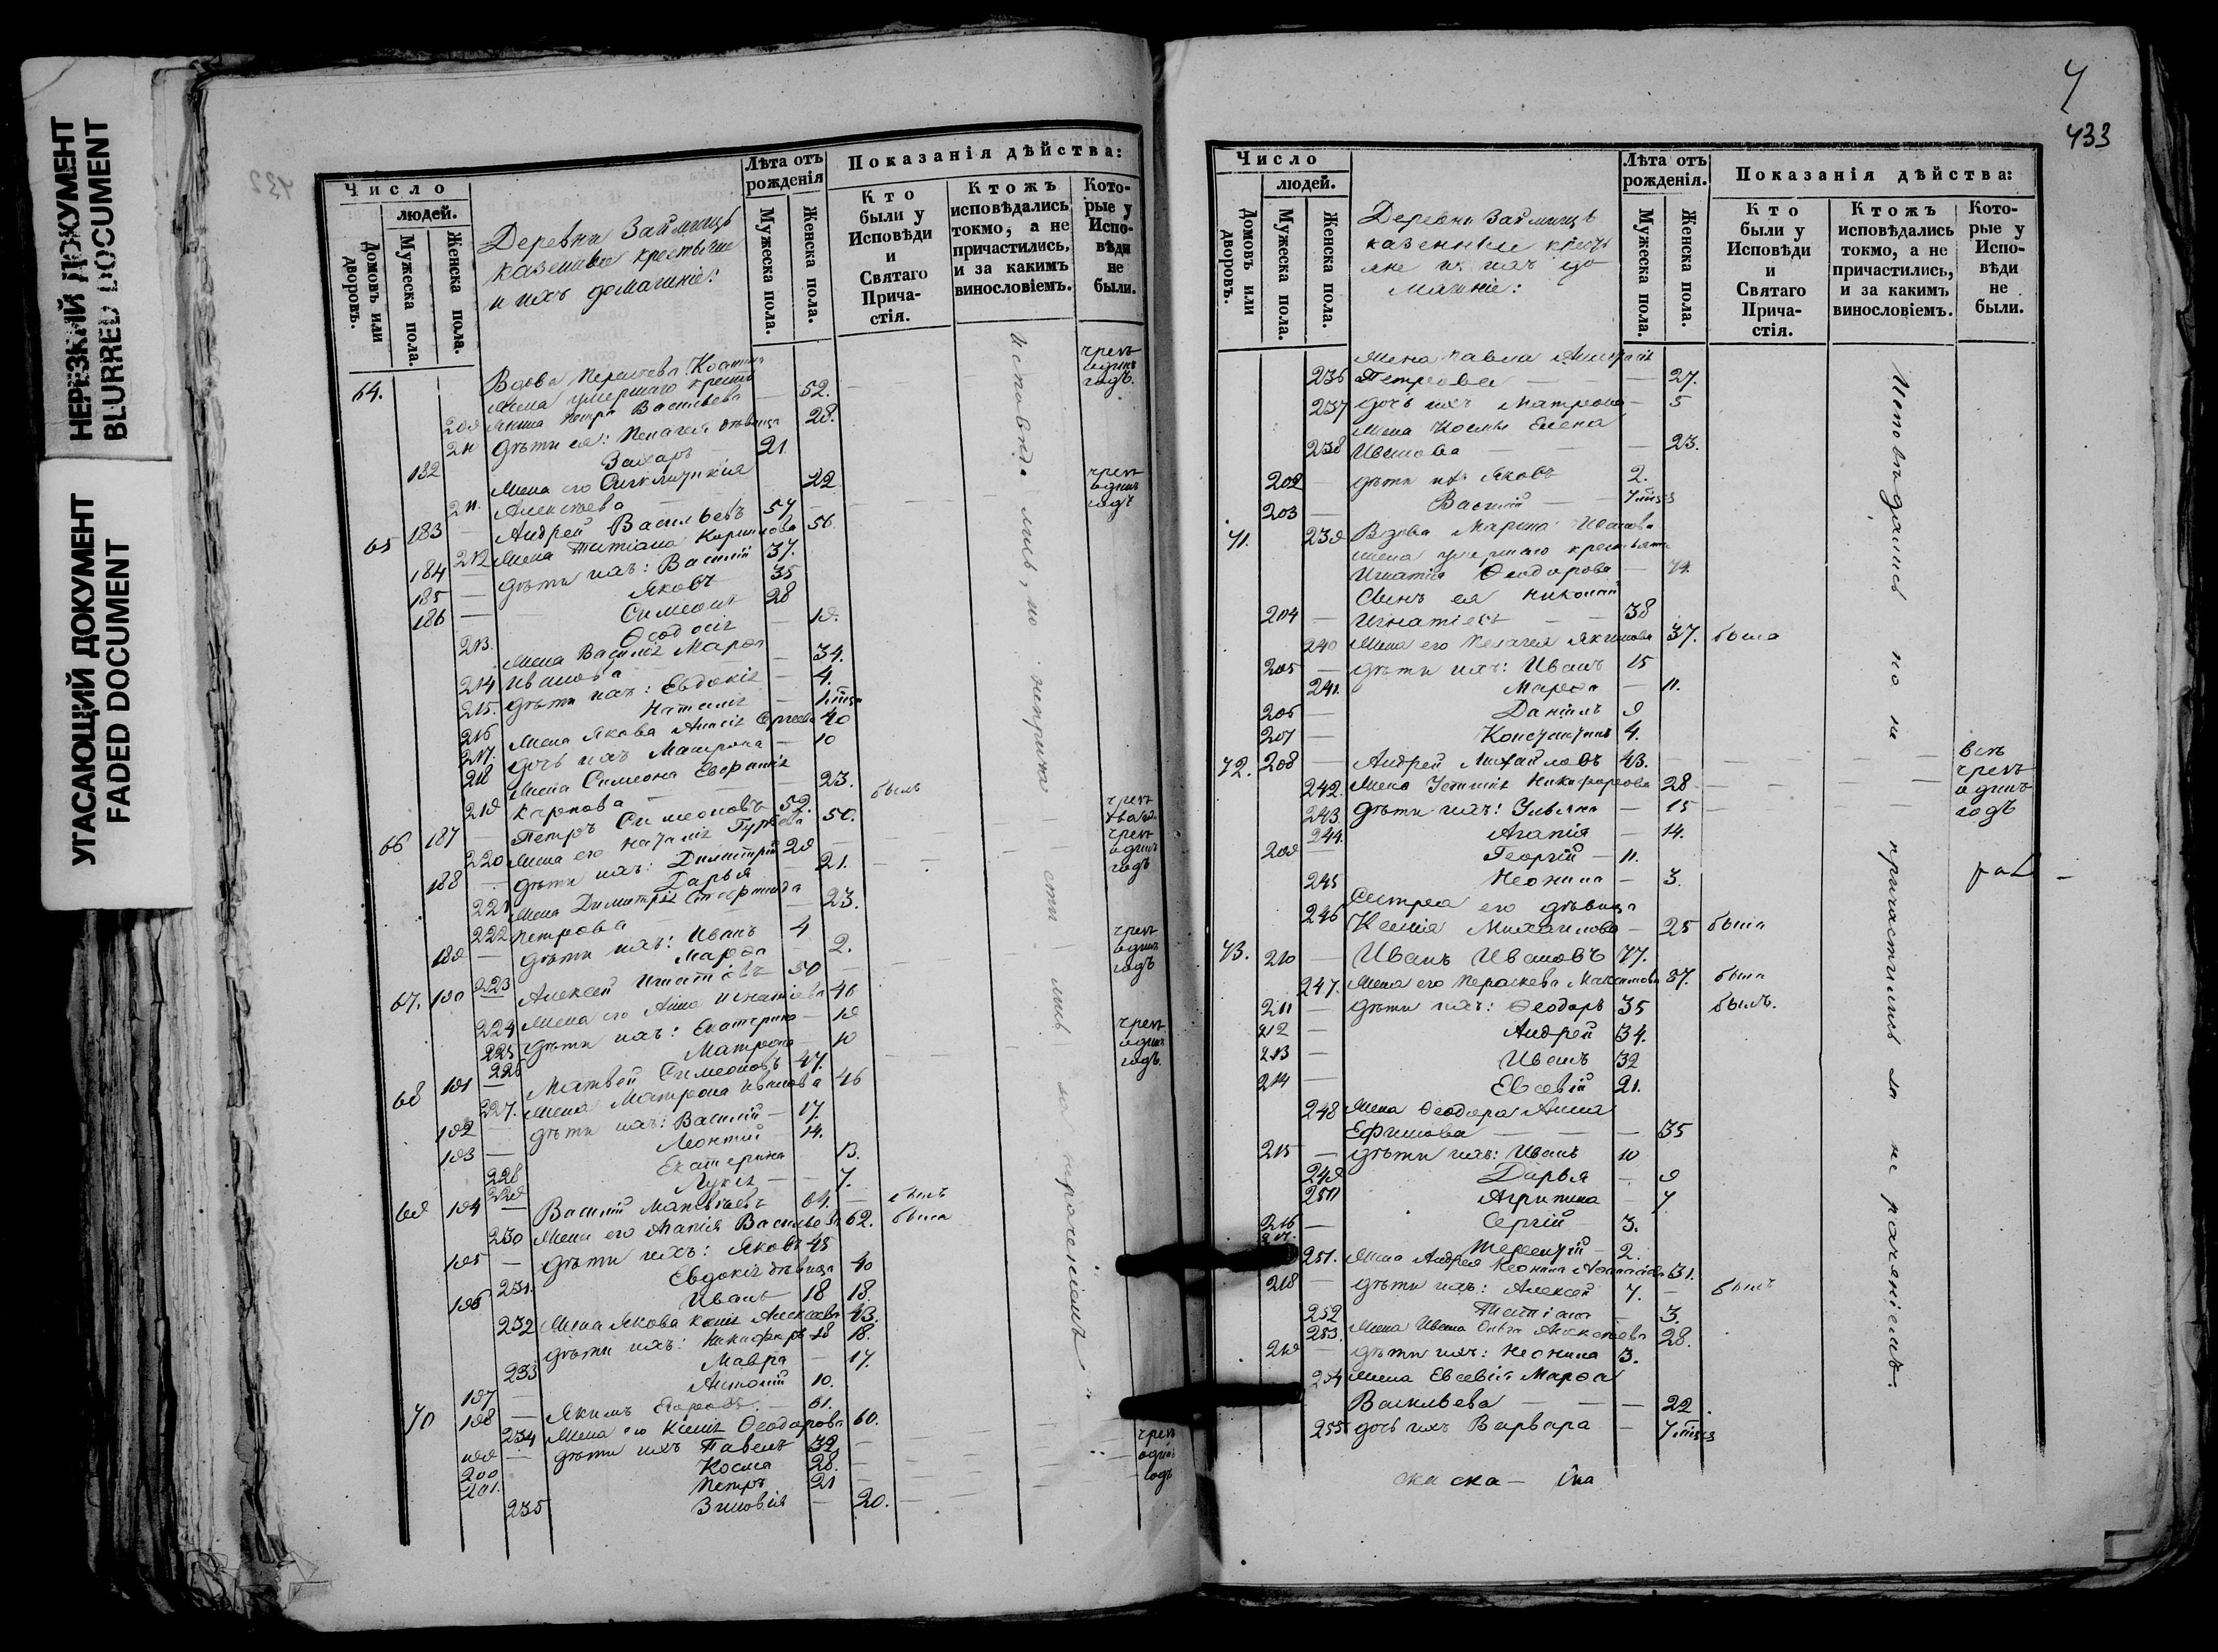 НЕРЕЗКИЙ ДОКУМЕНТ
BLURRED DOCUMENT
УГАСАЮЩИЙ ДОКУМЕНТ
FADED DOCUMENT
Число
людей.
Домовъ или дворовъ.
Мужеска пола.
Женска пола.
Деревни Займищъ
казенные крестьяне
и ихъ домашніе:
Лѣта отъ рожденія
Мужеска пола.
Женска пола.
Показанія дѣйства:
Кто были у Исповѣди и Святаго Прича-стія.
Ктожъ исповѣдались токмо, а не причастились, и за какимъ винословіемъ.
Кото-рые у Испо-вѣди не были.
64. Вдова
жена умершаго
209 Петра Васильева — 52.
210 дѣти ея: Пелагея дѣвица 28.
182 Захаръ 21.
жена его Синклитикія
211. Алексѣева 22
65 183 — Андрей Васильевъ 57
212 жена Татіана 56.
184 — дѣти ихъ: Василій 37.
185 — Яковъ 35
186 — Симеонъ 28
213. Ѳеодосія — 19.
жена Василія Марѳа
214 Иванова — 34.
215. дѣти ихъ: Евдокія — 4.
216 Наталія
217. жена Якова Анисія Сергеева 40
218 дочь ихъ Матрона — 10
жена Симеона Евфимія
219 Карпова 23.
66 187 — Петръ Симеоновъ 52. былъ
220 жена его Наталія Гурьева 50.
188 — дѣти ихъ: Димитрій 29
221 Дарья 21.
жена Димитрія
222 Петрова — 23.
189 — дѣти ихъ: Иванъ 4
223 Марѳа 2.
67. 190 — Алексей Игнатіевъ 50
224 жена его Анна Игнатіева 46
225 дѣти ихъ: Екатерина — 19
226 Матрона 10
68 191 — Матвей Симеоновъ 47.
227. жена Матрона Иванова 46
192 — дѣти ихъ: Василій — 17.
193 — Леонтій — 14.
228 Екатерина 13.
229 Лукія — 7.
69 194 — Василій Матвѣевъ 64. — былъ
230 жена его Агапія Васильева 62. была
195 — дѣти ихъ: Яковъ 43
231. Евдокія дѣвица 40
196 Иванъ 18
232 жена Якова Ксенія Алексеева 43.
дѣти ихъ: Никифоръ 18
233 Мавра — 17.
197 — Антоній 10.
70 198 — Якимъ — 61.
234 жена его Ксенія Ѳеодорова 60.
199 — дѣти ихъ Павелъ 32
200 Косма 28.
201. Петръ 21
235 Зиновія — 20.
Исповѣдались, но непричастились за нераченіемъ
чрезъ одинъ годъ.
чрезъ одинъ годъ
чрезъ
чрезъ одинъ годъ
чрезъ одинъ годъ
чрезъ одинъ годъ.
чрезъ одинъ годъ
433
Число
людей.
Домовъ или дворовъ.
Мужеска пола.
Женска пола.
Деревни Займищъ
казенные кресть
яне и ихъ до
машніе:
Лѣта отъ рожденія.
Мужеска пола.
Женска пола.
Показанія дѣйства:
Кто были у Исповѣди и Святаго Прича-стія.
Ктожъ исповѣдались токмо, а не причастились, и за какимъ винословіемъ.
Кото-рые у Испо-вѣди не были.
жена Павла
236 Петрова — 27.
237 дочь ихъ Матрона — 5
жена Космы Елена
238 Иванова — 23.
202 — дѣти их. Яковъ 2.
203 — Василій
71. 239 Вдова Марина Иванова
жена умершаго крестьянина
Игнатія Ѳеодорова — 74.
Сынъ ея Николай
204 — Игнатіевъ — 38
240 жена его Пелагея Якимова 37. была
205 — дѣти ихъ: Иванъ 15
241. Марѳа — 11.
206 — Даніилъ 9
207 — Константинъ 4.
72. 208 — Андрей Михайловъ 43.
242. жена Устинія Никифорова 28
243. дѣти ихъ: Ульяна — 15
244. Агапія — 14.
209 — Георгій — 11.
245 Неонила — 3.
Сестра его дѣвица
246 Ксенія Михаилова — 25 была
73. 210 — Иванъ Ивановъ 77.
247. жена его Параскева Максимова 57. была
211 — дѣти ихъ: Ѳеодоръ 35 былъ.
212 — Андрей 34.
213 — Иванъ 32
214 — Евсевій 21.
248 жена Ѳеодора Анна
Ефимова — 35
215 — дѣти ихъ: Иванъ 10
249 Дарья — 9
250 Агрипина — 7
216 — Сергій 3.
217. Терентій — 2.
251. жена Андрея Неонила 31.
218 — дѣти ихъ: Алексей 7. — былъ
252 Татіана — 3.
253. жена Ивана 28.
219 — дѣти ихъ: Неонила 3.
254 жена Евсевія Марѳа
Васильева — 22.
255 дочь ихъ Варвара
Исповѣдались но не причастились за не раченіемъ.
чрезъ одинъ годъ